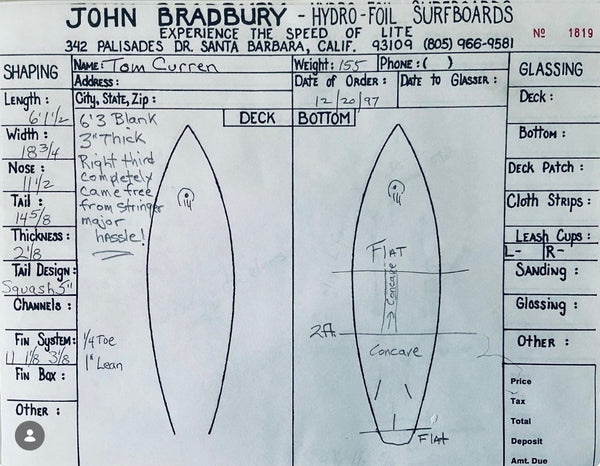 JOHN BRADBURY - HYDRO-FOIL SURFBOARDS
EXPERIENCE THE SPEED OF LITE
342 PALISADES DR. SANTA BARBARA, CALIF. 93109 (805) 966-9581
No 1819
SHAPING
Name: Tom Curren
Weight: 155
Phone: ( )
GLASSING
Address:
Date of Order:
Date to Glasser:
City, State, Zip:
12/20/97
Length:
6'1 1/2
Width:
18 3/4
Nose:
11 1/2
Tail:
14 5/8
Thickness:
2 1/8
Tail Design:
Squash 5"
Channels:
Fin System:
11 1/8 3 1/8
Fin Box:
Other:
DECK
BOTTOM
6'3 Blank
3" Thick
Right third
completely
came free
from stringer
major
hassle!
1/4 Toe
1" Lean
FLAT
Concave
2ft
Concave
FLAT
Deck:
Bottom:
Deck Patch:
Cloth Strips:
Leash Cups:
L- R-
Sanding:
Glossing:
Other:
Price
Tax
Total
Deposit
Amt. Due